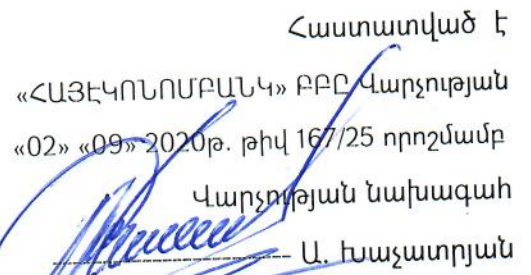 Հաստատված է
«ՀԱՅԷԿՈՆՈՄԲԱՆԿ» ԲԲԸ Վարչության
«02» «09» 2020թ. թիվ 167/25 որոշմամբ
Վարչության նախագահ
Ա. Խաչատրյան